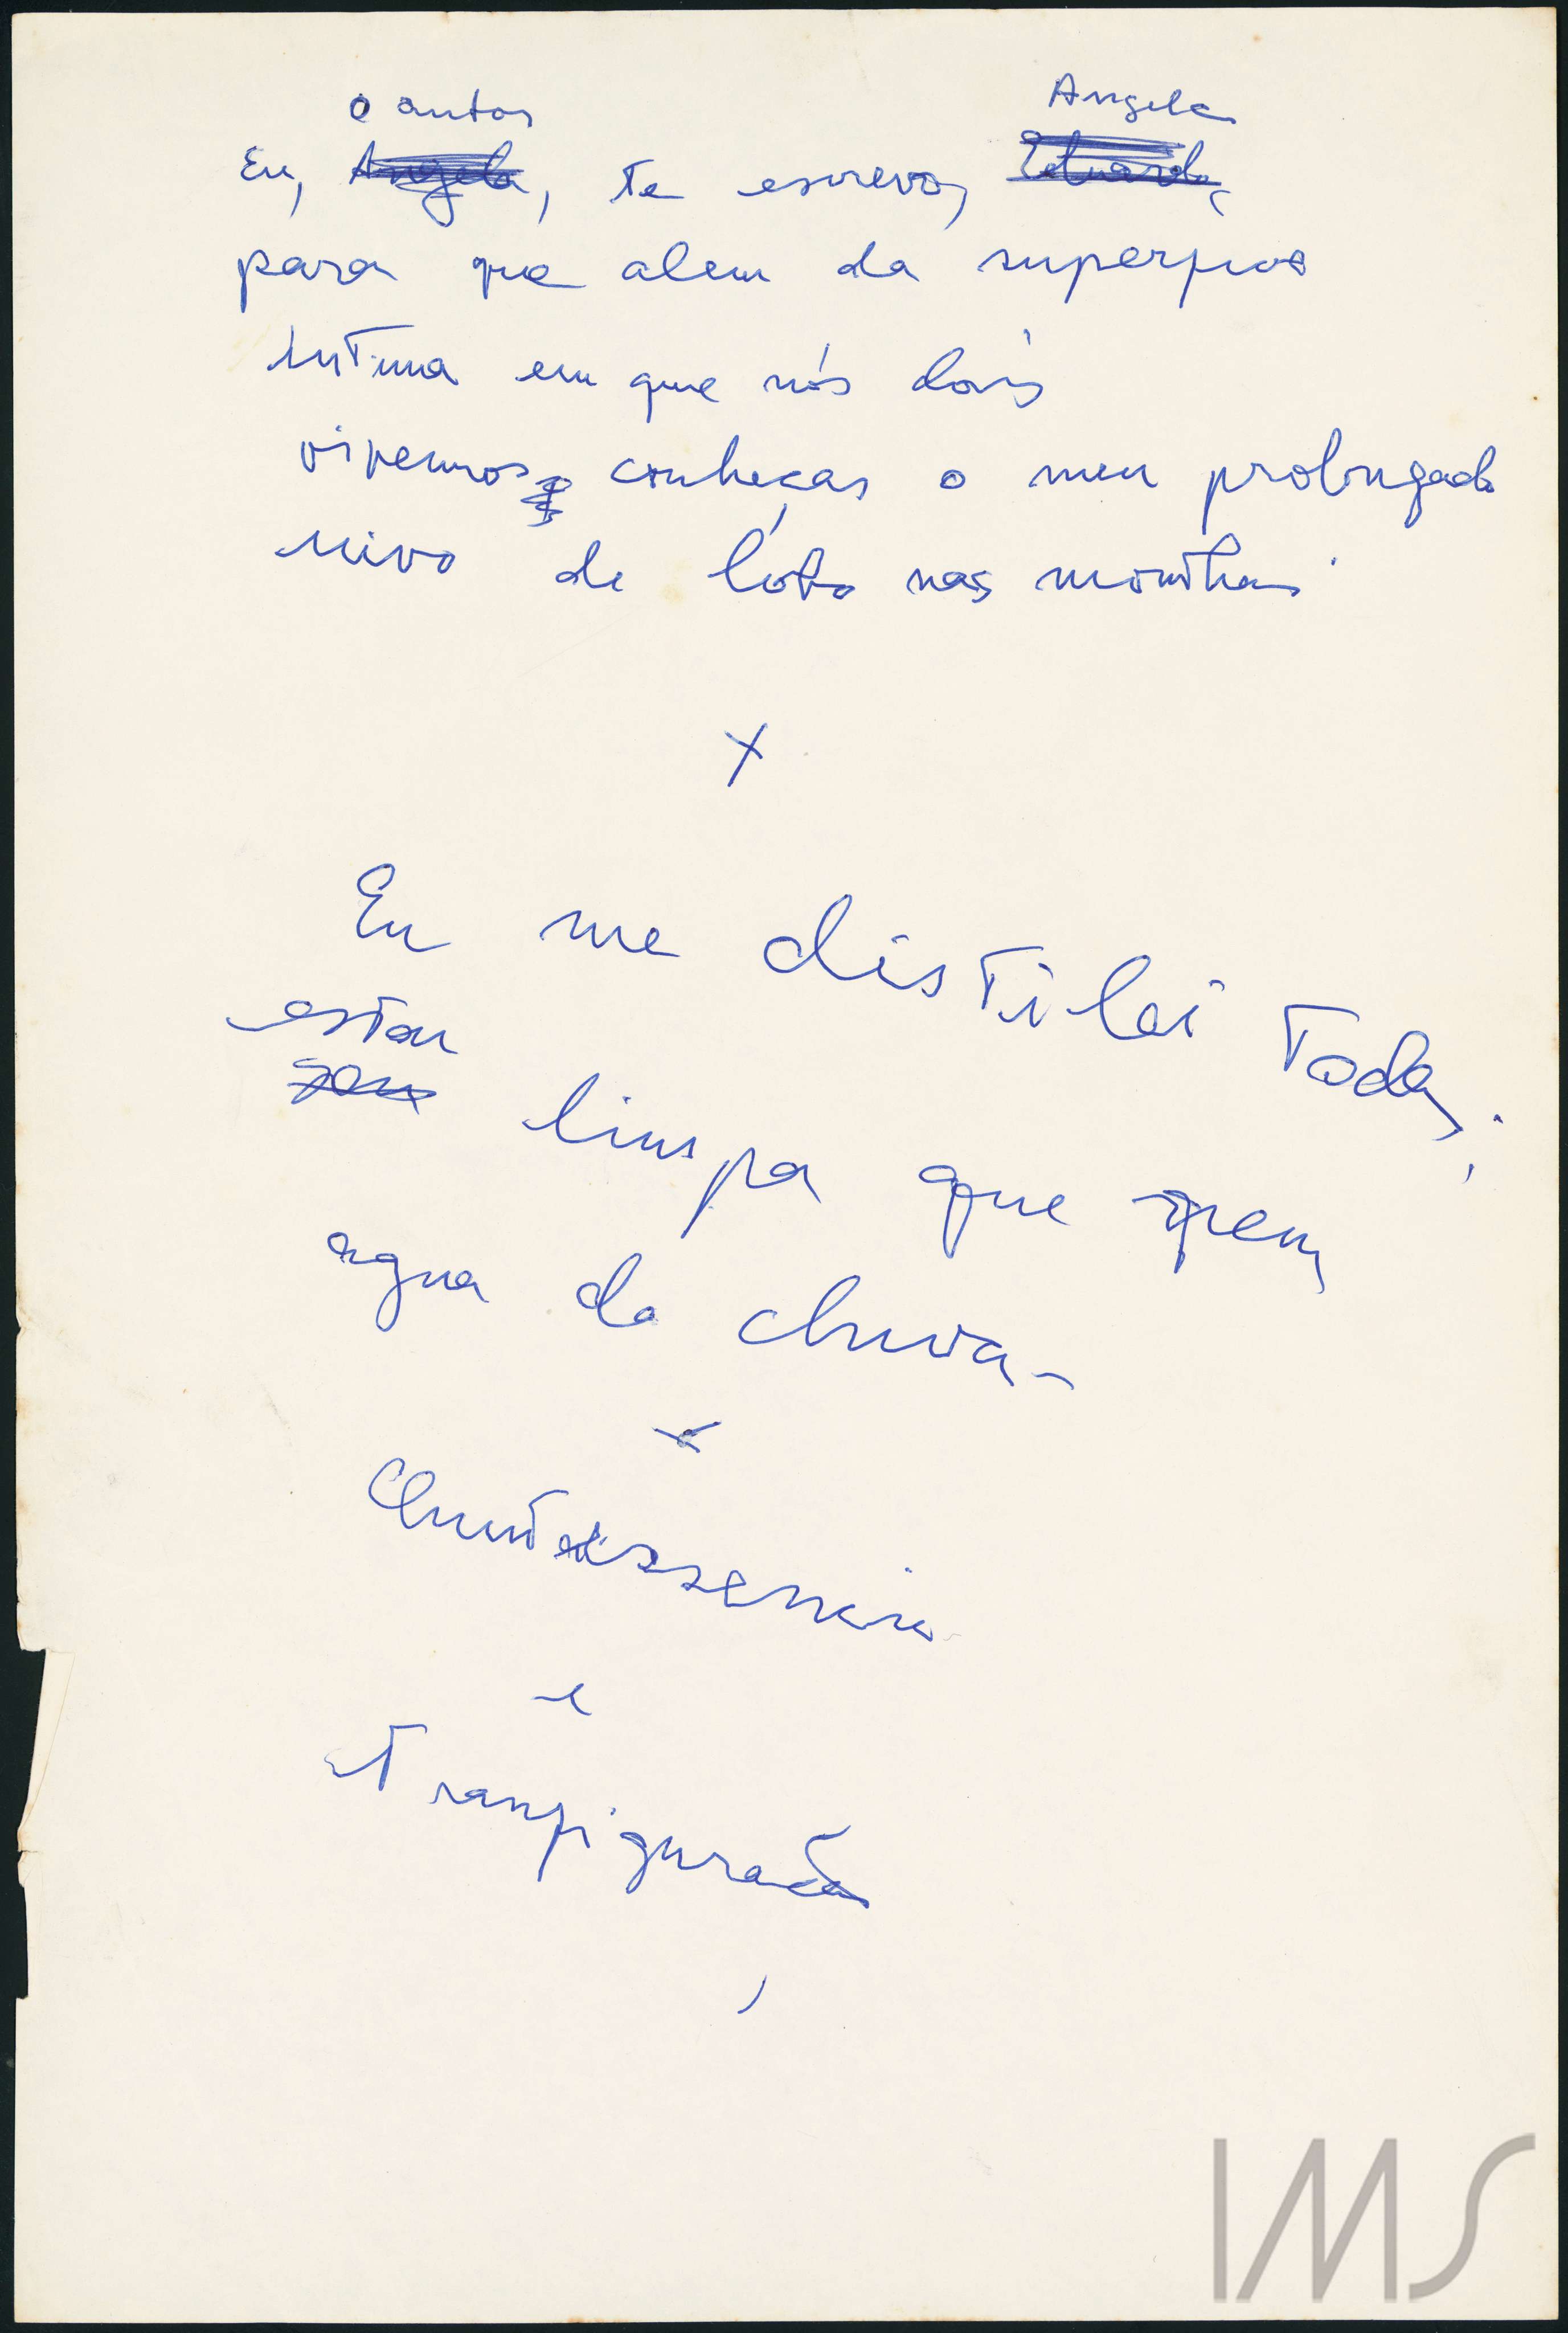 o autor Angela
Eu, Angela, te escrevo, Eduardo,
para que alem da superficie
intima em que nós dois
vivemos conheças o meu prolongado
uivo de lobo nas montanhas.
x
Eu me distilei toda;
estou
sou limpa que nem
agua da chuva.
x
Quintessencia
e
Transfiguração
IMS